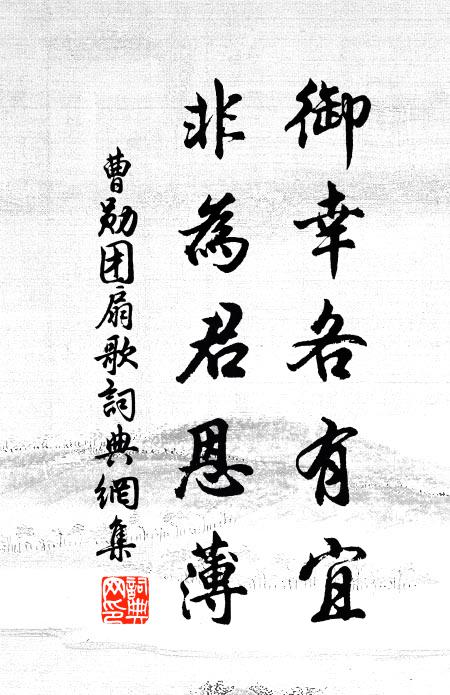 御幸各有宜
非為君恩薄
曹勛团扇歌詞典網集
詞典网印